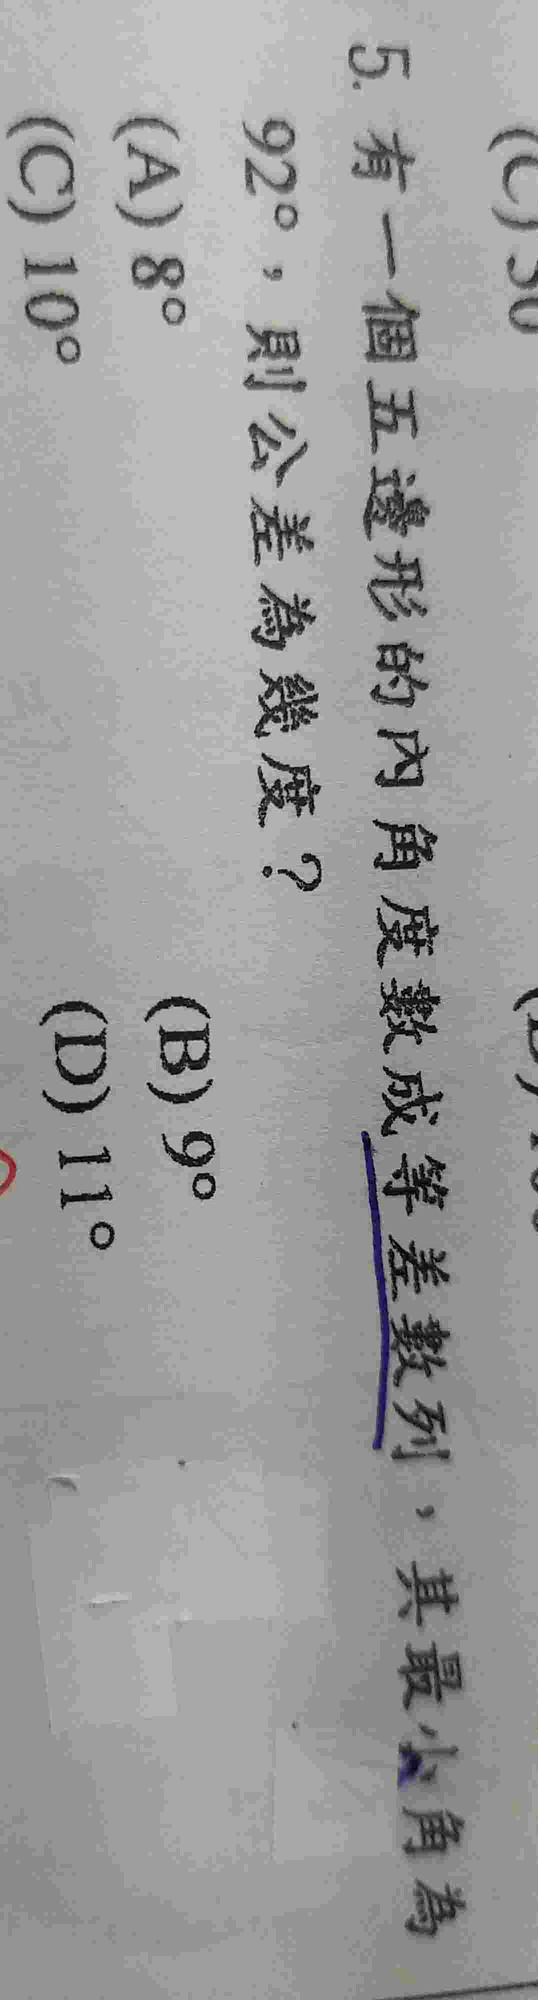 5. 有一個五邊形的內角度數成等差數列，其最小角為
92°，則公差為幾度？
(A) 8° (B) 9°
(C) 10° (D) 11°